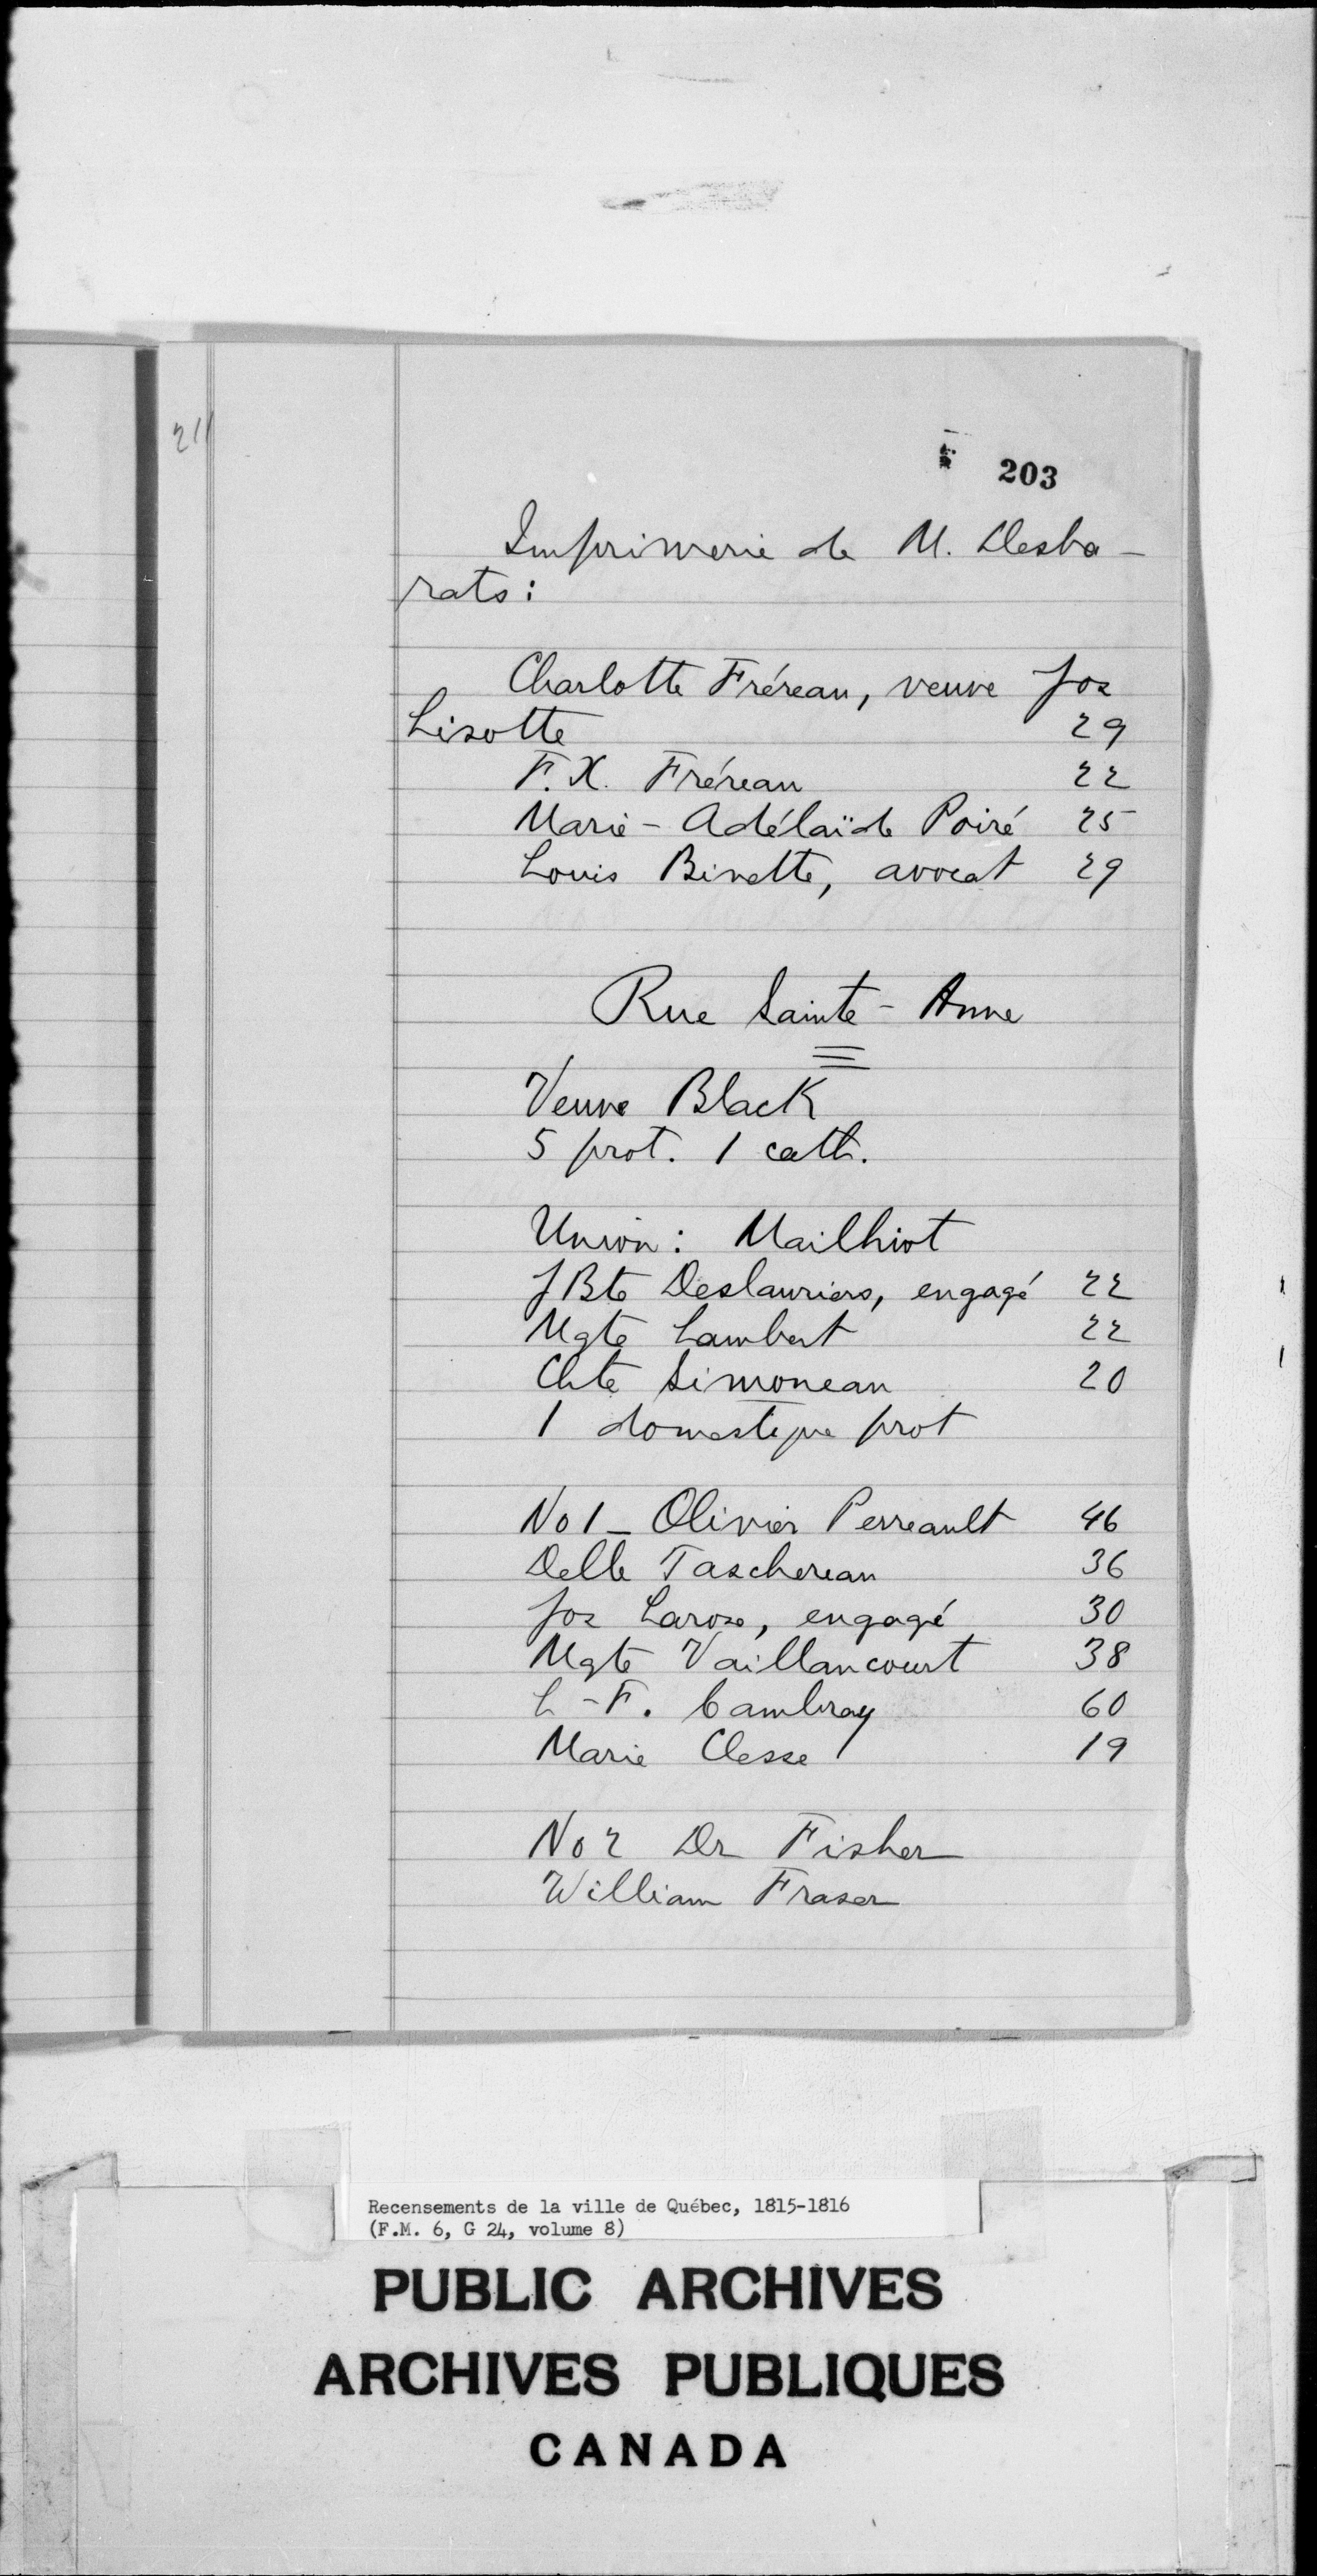 211
203
Imprimerie de M. Desba-
rats :
Charlotte Fréreau, veuve Jos
Lizotte 29
F. X. Fréreau 22
Marie-Adélaïde Poiré 25
Louis Binette, avocat 29
Rue Sainte-Anne
Veuve Black
5 prot. 1 cath.
Union : Mailhiot
J Bte Deslauriers, engagé 22
Mgte Lambert 22
Chte Simoneau 20
1 domestique prot
No 1 - Olivier Perreault 46
Delle Taschereau 36
Jos Larose, engagé 30
Mgte Vaillancourt 38
L-F. Cambray 60
Marie Clesse 19
No 2 Dr Fisher
William Fraser
Recensements de la ville de Québec, 1815-1816
(F.M. 6, G 24, volume 8)
PUBLIC ARCHIVES
ARCHIVES PUBLIQUES
CANADA